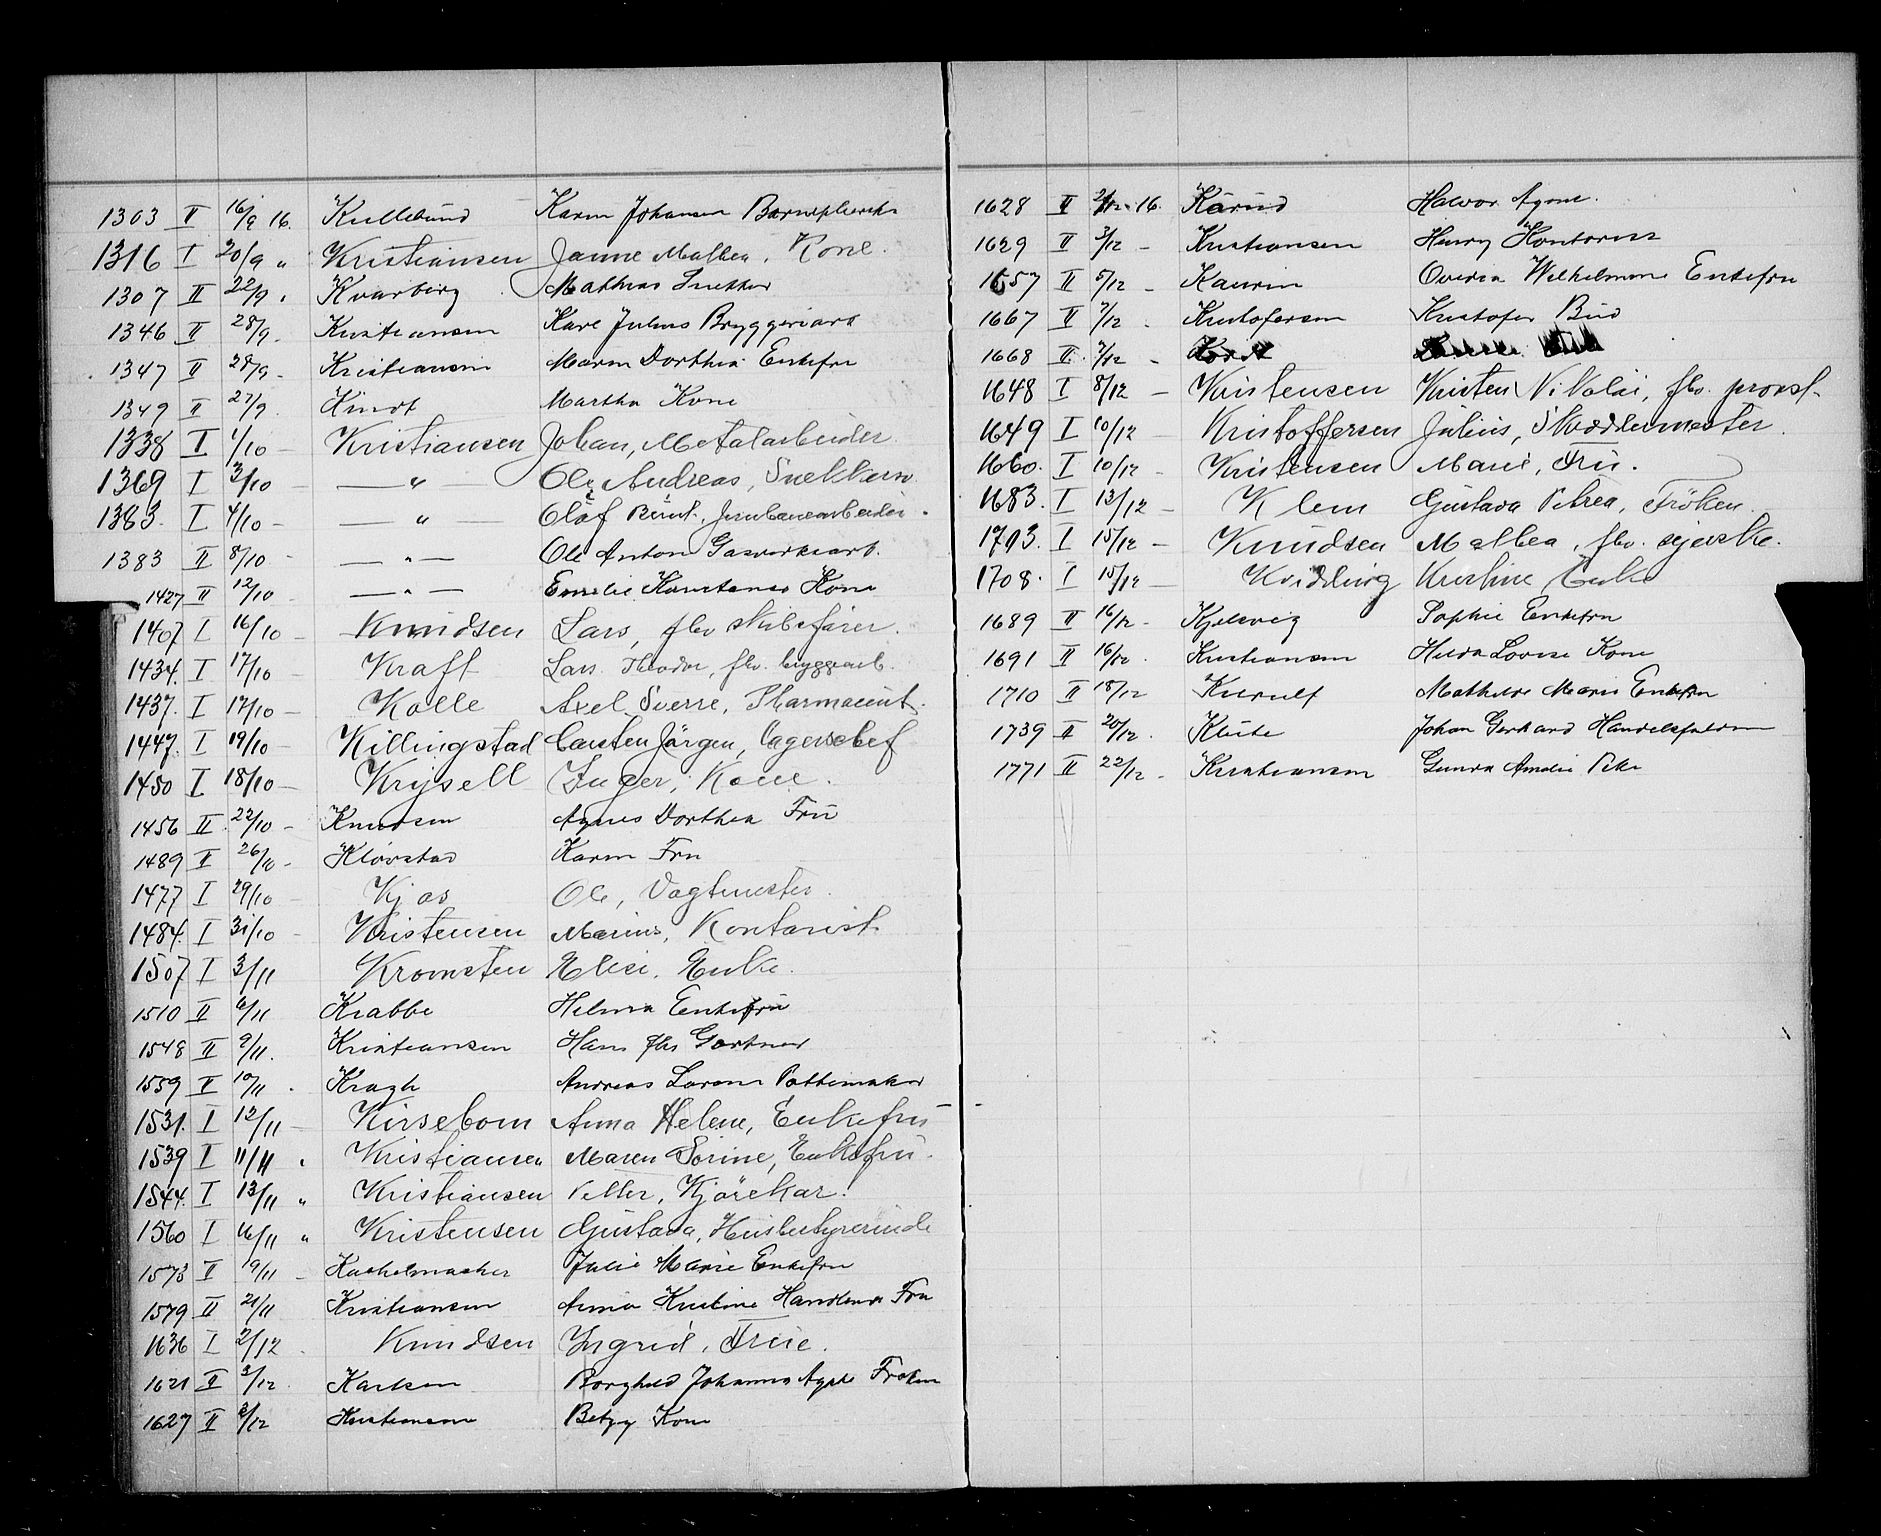 1303 II 16/9 16. Kullebund Karen Johansen
1316 I 20/9 " Kristiansen Janne Mathea, Kone.
1307 II 22/9 " Kvarberg Mathias Snekker
1346 II 28/9 - Kristiansen Karl Julius Bryggeriarb
1347 II 28/9 - Kristiansen Maren Dorthea Enkefru
1349 II 27/9 Kindt Martha Kone
1338 I 1/10 - Kristiansen Johan, Metalarbeider.
1369 I 3/10 - — " — Ole Andreas, Snekkersv.
1383. I 4/10 - — " — Olaf Bernt, Jernbanearbeider.
1383 II 8/10 - — " — Ole Anton Gasverksarb.
1427 II 12/10 - — " — Emelie Konstance Kone
1407 I 16/10 - Knudsen Lars, fhv skibsfører.
1434. I 17/10 - Kraft Lars Theodor, fhv. bryggearb.
1437. I 17/10 - Kolle Axel Sverre, Pharmaceut.
1447. I 19/10 - Killingstad Carsten Jörgen, Lagerchef
1450 I 18/10 - Krysell Inger, Kone.
1456 II 22/10 - Knudsen Agnes Dorthea Frü
1489 II 26/10 - Kløvstad Karen Fru
1477 I 29/10 - Kjos Ole, Vagtmester.
1484. I 31/10 - Kristensen Marius, Kontorist.
1507 I 3/11 Kromsten Elise, Enke.
1510 II 6/11 Krabbe Helma Enkefrü
1548 II 9/11. Kristiansen Hans fhv Gartner
1559 II 10/11 . Kragh Andreas Lorens Pottemaker
1531. I 12/11 - Kirsebom Anna Helene, Enkefru
1539 I 11/11 " Kristiansen Maren Sorine, Enkefru.
1544. I 13/11 " Kristiansen Petter, Kjörekar.
1560 I 16/11 " Kristensen Gustava, Husbestyrerinde
1573 II 19/11 - Kachelmacher Julie Marie Enkefru
1579 II 21/11 Kristiansen Anna Kristine Handlende Fru
1636 I 2/12 . Knudsen Ingrid, Frue.
1621 II 2/12. Karlsen Borghild Johanna Agate Frøken
1627 II 2/12 Kristiansen Betzy Kone
1628 II 2/12 - 16. Karud Halvor Agent.
1629 II 3/12 - Kristiansen Henry Kontorist
1657 II 5/12 - Kaurin Ovedia Wilhelmine Enkefru
1667 II 7/12 . Kristofersen Kristofer Bud
1668 II. 7/12 -
1648 I 8/12 - Kristensen Kristen Nikolai, fhv. provst.
1649 I 10/12 - Kristoffersen Julius, Skræddermester.
1660. I 10/12 - Kristensen Marie, Frü.
1683. I 13/12 - Klem Gustava Petrea, Fröken.
1703. I 15/12 - Knudsen Mathea, fhv. syerske.
1708. I 15/12 - Kvidding Kristine Enke
1689 II 16/12 - Kjelsvig Sophie Enkefru
1691 II 16/12 . Kristiansen Hilda Lovise Kone
1710 II 18/12 Kierulf Mathilde Marie Enkefru
1739 II 20/12 . Klüte Johan Gerhard
1771 II 22/12 - Kristiansen Gunda Amalie Pike